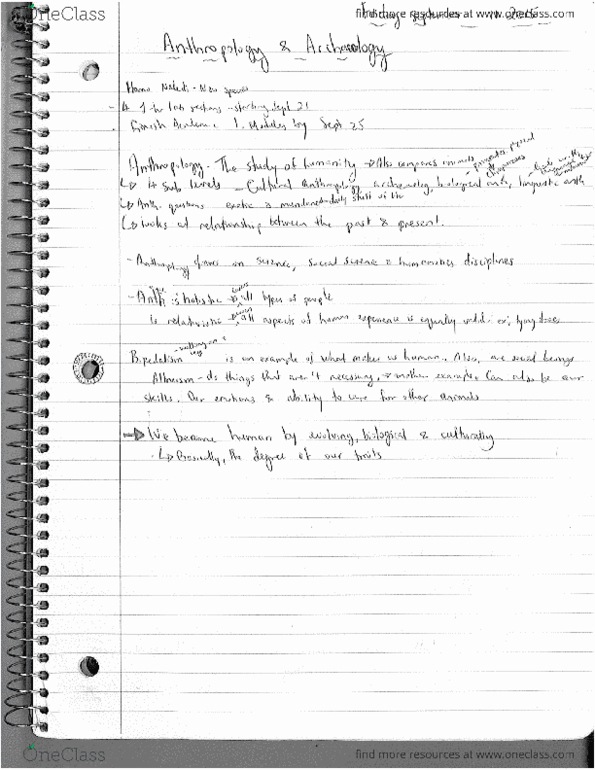 OneClass
find more resources at www.oneclass.com
Anthropology & Archaeology
Homo Naledi - New species
lab sections - starting Sept 21
1. Modules by Sept 25
Anthropology - The study of humanity → Also compares animals
↳ 4 Sub levels - Cultural anthropology, archaeology, biological anth, linguistic anth
↳ Anth. questions exotic &
↳ looks at relationship between the past & present.
- Anthropology draws on science, social science & humanities disciplines
- Anth is holistic → all types of people
is relativistic all aspects of human experience is equally valid. ex, tying tree
walking on 2 legs
Bipedalism is an example of what makes us human. Also, are social beings
Altruism - do things that aren't necessary, → another example. Can also be our
skills. Our emotions & ability to care for other animals
→ We became human by evolving, biological & culturally
↳ Basically, the degree of our traits
OneClass
find more resources at www.oneclass.com